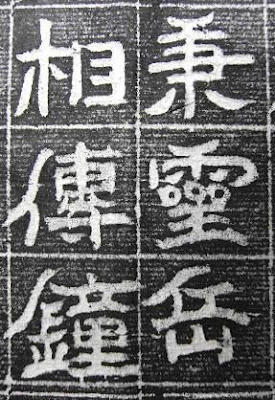 秉靈岳
相傳鐘